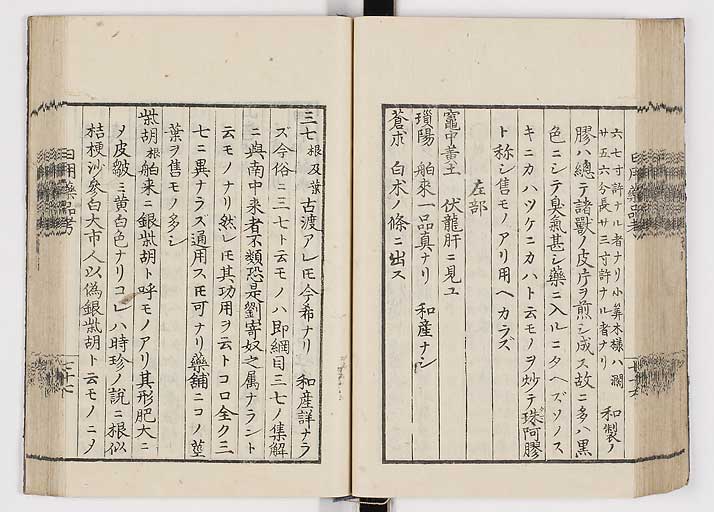 六七寸許ナル者ナリ小算木様ハ濶
サ五六分長サ三寸許ナル者ナリ 和製ノ
膠ハ總テ諸獸ノ皮庁ヲ煎シ成ス故ニ多ハ黒
色ニシテ臭氣甚シ藥ニ入ルニタヘズソノス
キニカハツケニカハト云モノヲ炒テ珠阿膠
ト称シ售モノアリ用ヘカラズ
左部
竈中黄土 伏龍肝ニ見ユ
瑣陽 舶來一品真ナリ 和産ナシ
蒼朮 白朮ノ條ニ出ス
日用藥品考
三七根及葉 古渡アレ𪜈今希ナリ 和産詳ナラ
ズ今俗ニ三七ト云モノハ即綱目三七ノ集解
ニ與南中来者不類恐是劉寄奴之属ナラント
云モノナリ然レ𪜈其功用ヲ云トコロ全ク三
七ニ異ナラズ通用ス𪜈可ナリ藥舗ニコノ莖
葉ヲ售モノ多シ
柴胡根 舶来ニ銀柴胡ト呼モノアリ其形肥大ニ
〆皮皺ミ黄白色ナリコレハ時珍ノ説ニ根似
桔梗沙參白大市人以偽銀柴胡ト云モノニ〆
日用藥品考